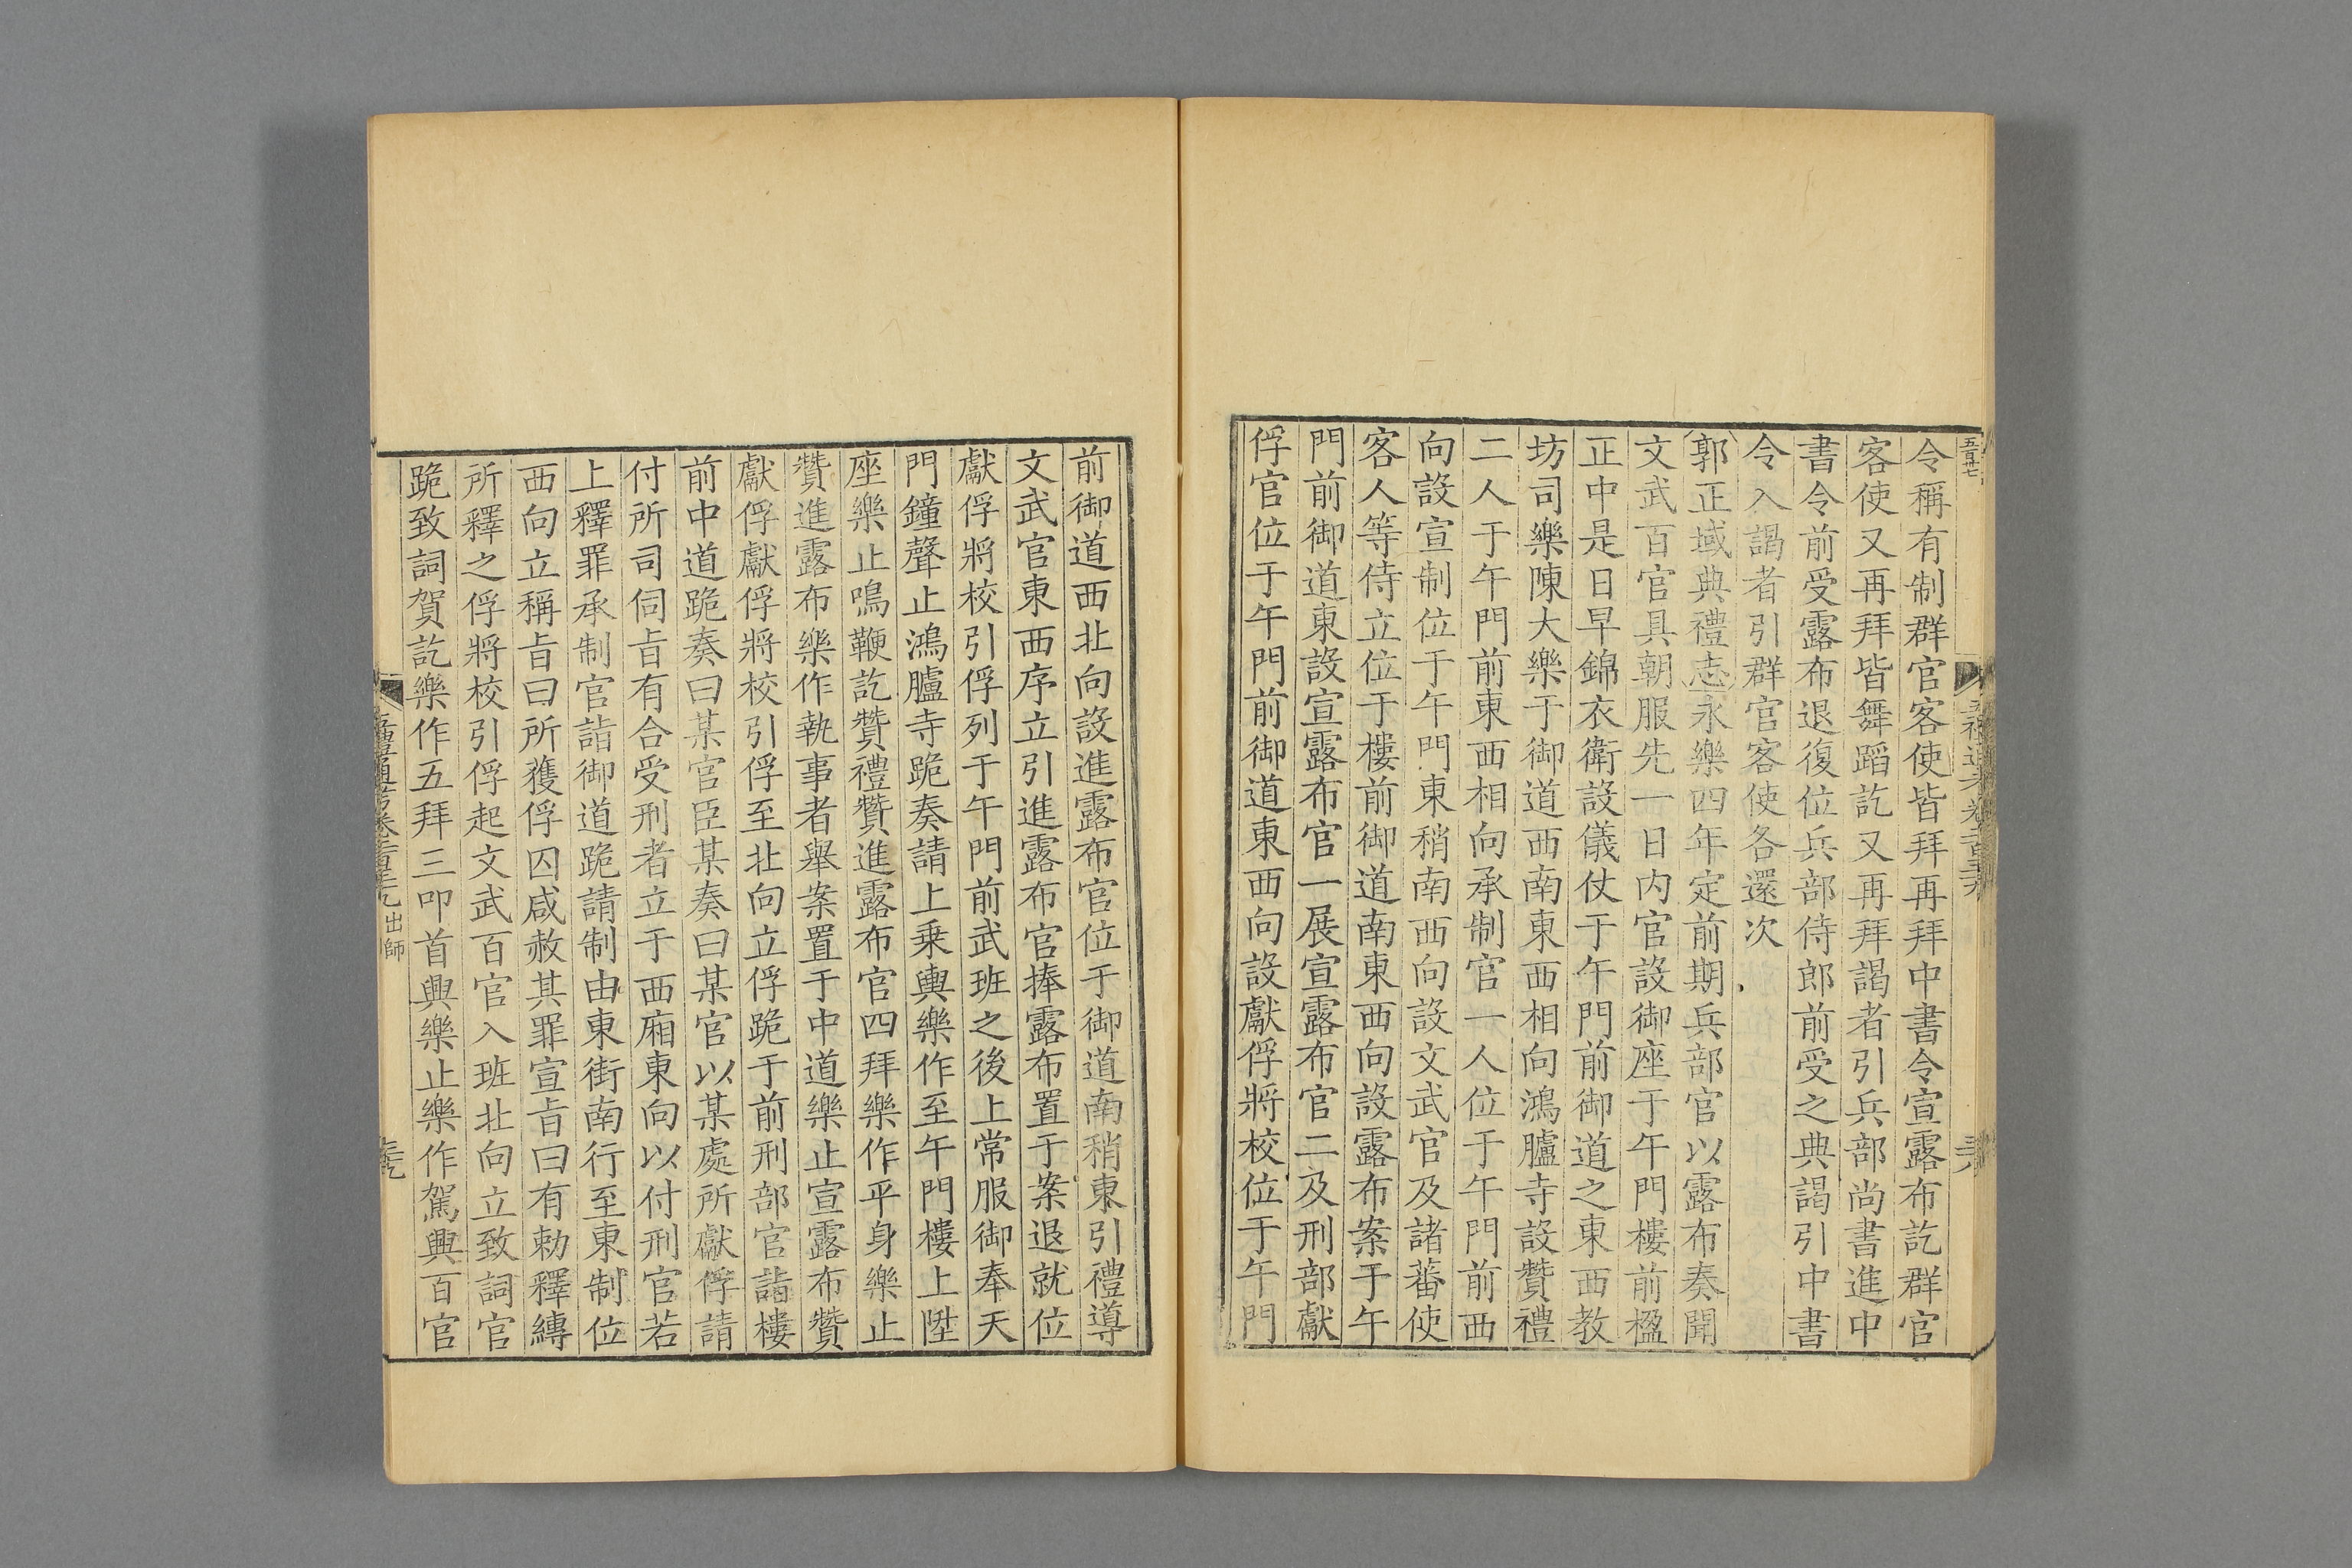 令稱有制群官客使皆拜再拜中書令宣露布訖群官
客使又再拜皆舞蹈訖又再拜謁者引兵部尚書進中
書令前受露布退復位兵部侍郎前受之典謁引中書
令入謁者引群官客使各還次
郭正域典禮志永樂四年定前期兵部官以露布奏聞
文武百官具朝服先一日内官設御座于午門樓前楹
正中是日早錦衣衛設儀仗于午門前御道之東西教
坊司樂陳大樂于御道西南東西相向鴻臚寺設贊禮
二人于午門前東西相向承制官一人位于午門前西
向設宣制位于午門東稍南西向設文武官及諸蕃使
客人等侍立位于樓前御道南東西向設露布案于午
門前御道東設宣露布官一展宣露布官二及刑部獻
俘官位于午門前御道東西向設獻俘將校位于午門
前御道西北向設進露布官位于御道南稍東引禮導
文武官東西序立引進露布官捧露布置于案退就位
獻俘將校引俘列于午門前武班之後上常服御奉天
門鐘聲止鴻臚寺跪奏請上乗輿樂作至午門樓上陞
座樂止鳴鞭訖贊禮贊進露布官四拜樂作平身樂止
贊進露布樂作執事者舉案置于中道樂止宣露布贊
獻俘獻俘將校引俘至北向立俘跪于前刑部官詣樓
前中道跪奏曰某官臣某奏曰某官以某處所獻俘請
付所司伺旨有合受刑者立于西廂東向以付刑官若
上釋罪承制官詣御道跪請制由東街南行至東制位
西向立稱旨曰所獲俘囚咸赦其罪宣旨曰有勅釋縛
所釋之俘將校引俘起文武百官入班北向立致詞官
跪致詞賀訖樂作五拜三叩首興樂止樂作駕興百官
出師